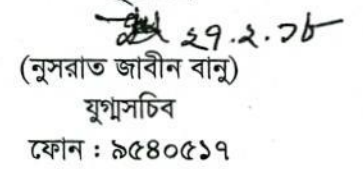 ২৭.২.১৮
(নুসরাত জাবীন বানু)
যুগ্মসচিব
ফোন : ৯৫৪০৫১৭